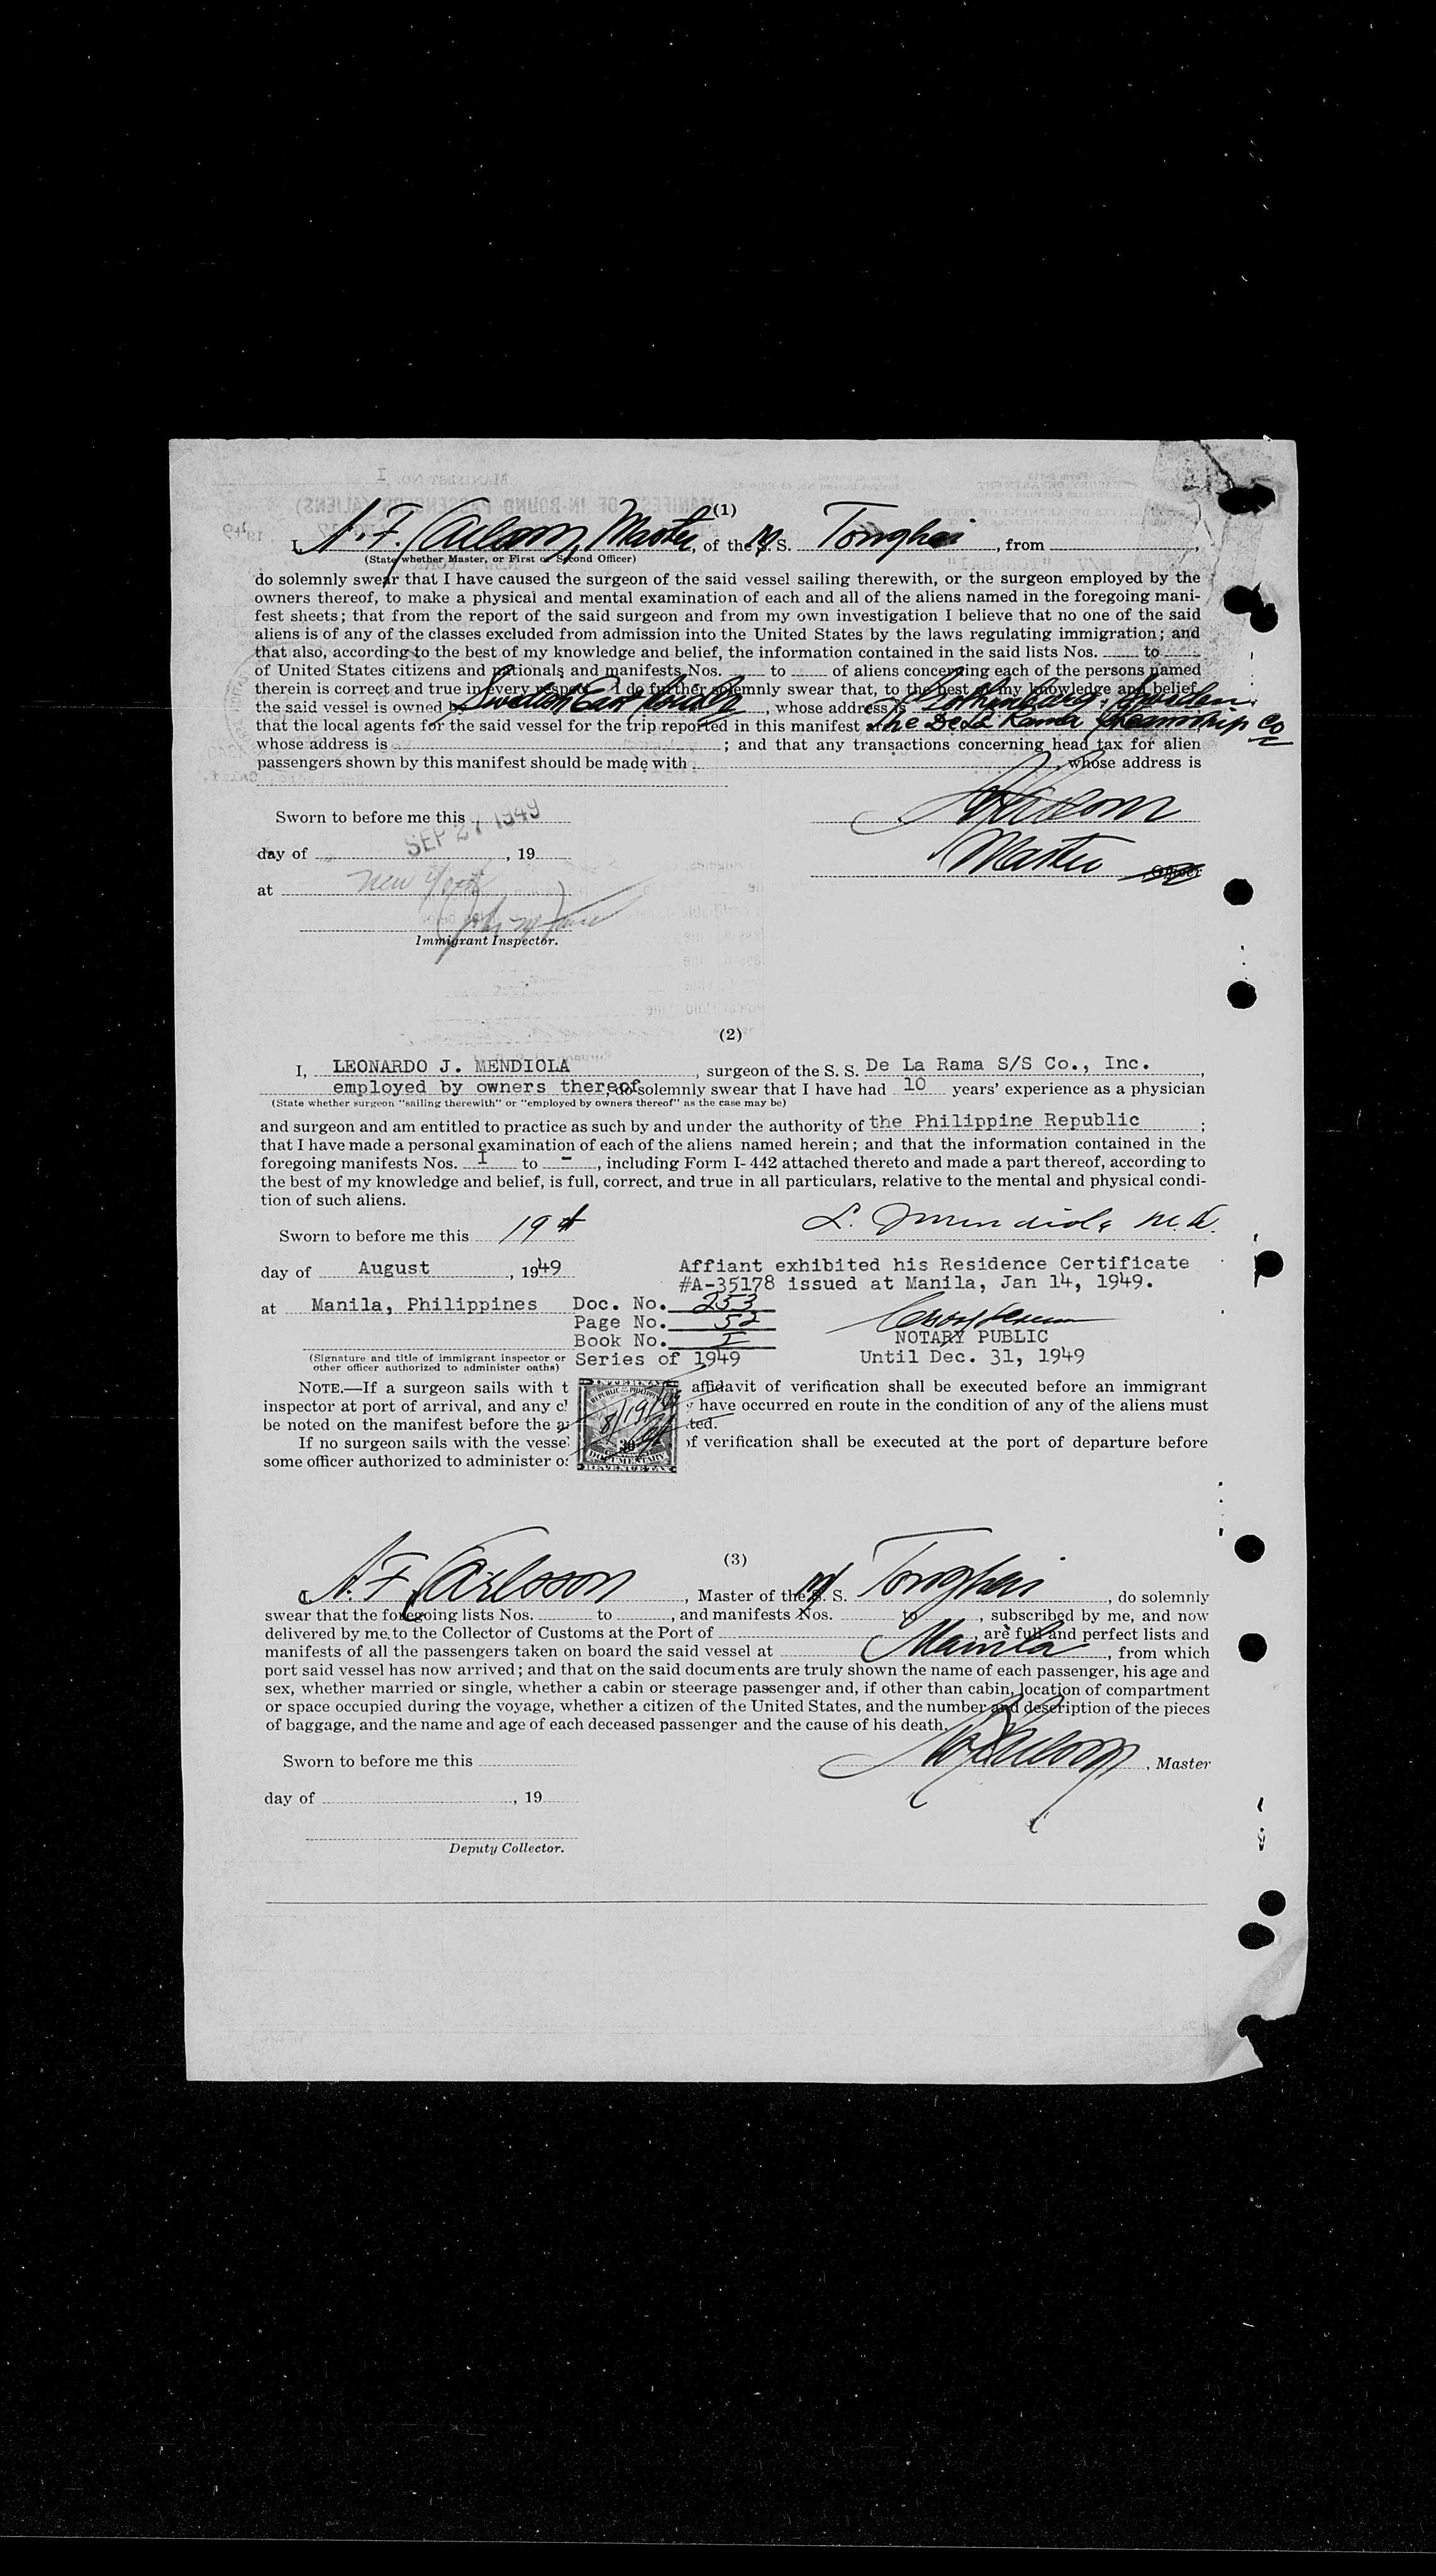 (1)
I, A. F. Carlsson, Master, of the M. S. Tonghai, from
(State whether Master, or First or Second Officer)
do solemnly swear that I have caused the surgeon of the said vessel sailing therewith, or the surgeon employed by the
owners thereof, to make a physical and mental examination of each and all of the aliens named in the foregoing mani-
fest sheets; that from the report of the said surgeon and from my own investigation I believe that no one of the said
aliens is of any of the classes excluded from admission into the United States by the laws regulating immigration; and
that also, according to the best of my knowledge and belief, the information contained in the said lists Nos. to
of United States citizens and nationals and manifests Nos. to of aliens concerning each of the persons named
therein is correct and true in every respect. I do further solemnly swear that, to the best of my knowledge and belief,
the said vessel is owned by Swedish East Asia Co, whose address is Gothenburg, Sweden
that the local agents for the said vessel for the trip reported in this manifest are The De La Rama Steamship Co
whose address is ; and that any transactions concerning head tax for alien
passengers shown by this manifest should be made with , whose address is
Sworn to before me this SEP 27 1949
day of , 19
Master, Officer
at New York
Immigrant Inspector.
(2)
I, LEONARDO J. MENDIOLA, surgeon of the S. S. De La Rama S/S Co., Inc.,
employed by owners thereof, do solemnly swear that I have had 10 years' experience as a physician
(State whether surgeon "sailing therewith" or "employed by owners thereof" as the case may be)
and surgeon and am entitled to practice as such by and under the authority of the Philippine Republic;
that I have made a personal examination of each of the aliens named herein; and that the information contained in the
foregoing manifests Nos. I to -, including Form I-442 attached thereto and made a part thereof, according to
the best of my knowledge and belief, is full, correct, and true in all particulars, relative to the mental and physical condi-
tion of such aliens.
L. J. Mendiola M.D.
Sworn to before me this 19th
day of August, 1949
Affiant exhibited his Residence Certificate
#A-35178 issued at Manila, Jan 14, 1949.
at Manila, Philippines
Doc. No. 253
Page No. 52
Book No. I
Series of 1949
NOTARY PUBLIC
Until Dec. 31, 1949
(Signature and title of immigrant inspector or
other officer authorized to administer oaths)
NOTE.—If a surgeon sails with t affidavit of verification shall be executed before an immigrant
inspector at port of arrival, and any c y have occurred en route in the condition of any of the aliens must
be noted on the manifest before the a ted.
If no surgeon sails with the vesse of verification shall be executed at the port of departure before
some officer authorized to administer o
REPUBLIC OF THE PHILIPPINES
8/19/49
30
DOCUMENTARY
(3)
I, A. F. Carlsson, Master of the M. S. Tonghai, do solemnly
swear that the foregoing lists Nos. to , and manifests Nos. to , subscribed by me, and now
delivered by me to the Collector of Customs at the Port of , are full and perfect lists and
manifests of all the passengers taken on board the said vessel at Manila, from which
port said vessel has now arrived; and that on the said documents are truly shown the name of each passenger, his age and
sex, whether married or single, whether a cabin or steerage passenger and, if other than cabin, location of compartment
or space occupied during the voyage, whether a citizen of the United States, and the number and description of the pieces
of baggage, and the name and age of each deceased passenger and the cause of his death.
Sworn to before me this
A. F. Carlsson, Master
day of , 19
Deputy Collector.